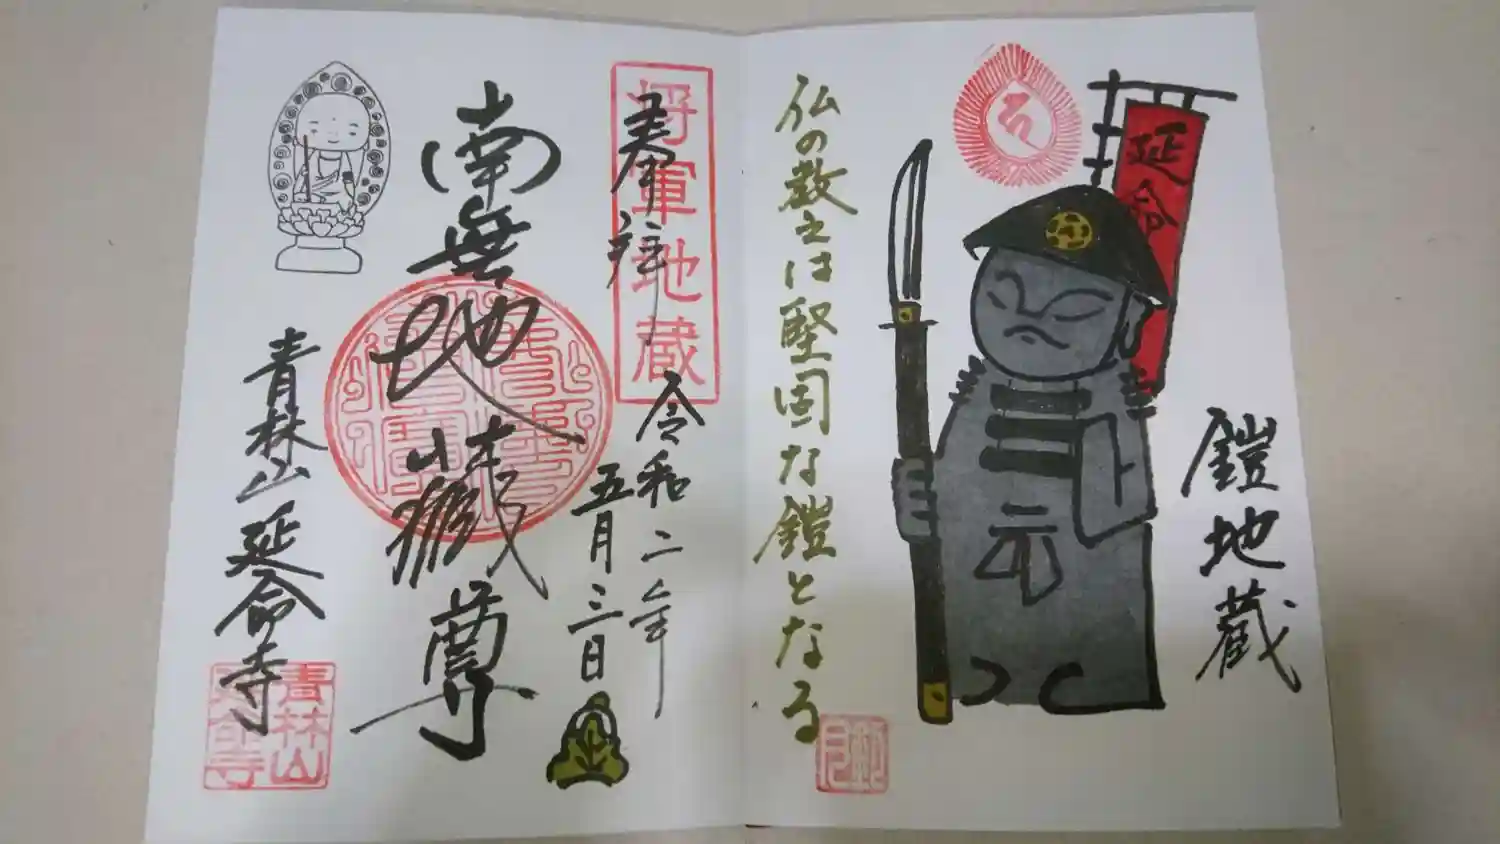 鎧地蔵
延命
仏の教えは堅固な鎧となる
将軍地蔵
奉拝
令和二年
五月三日
南無地蔵尊
青林山延命寺
青林山
延命寺